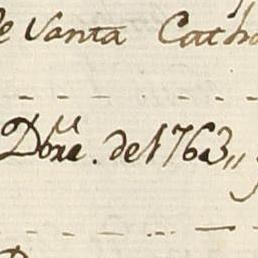 e Santa Catha
Dõzẽ. de 1763,,